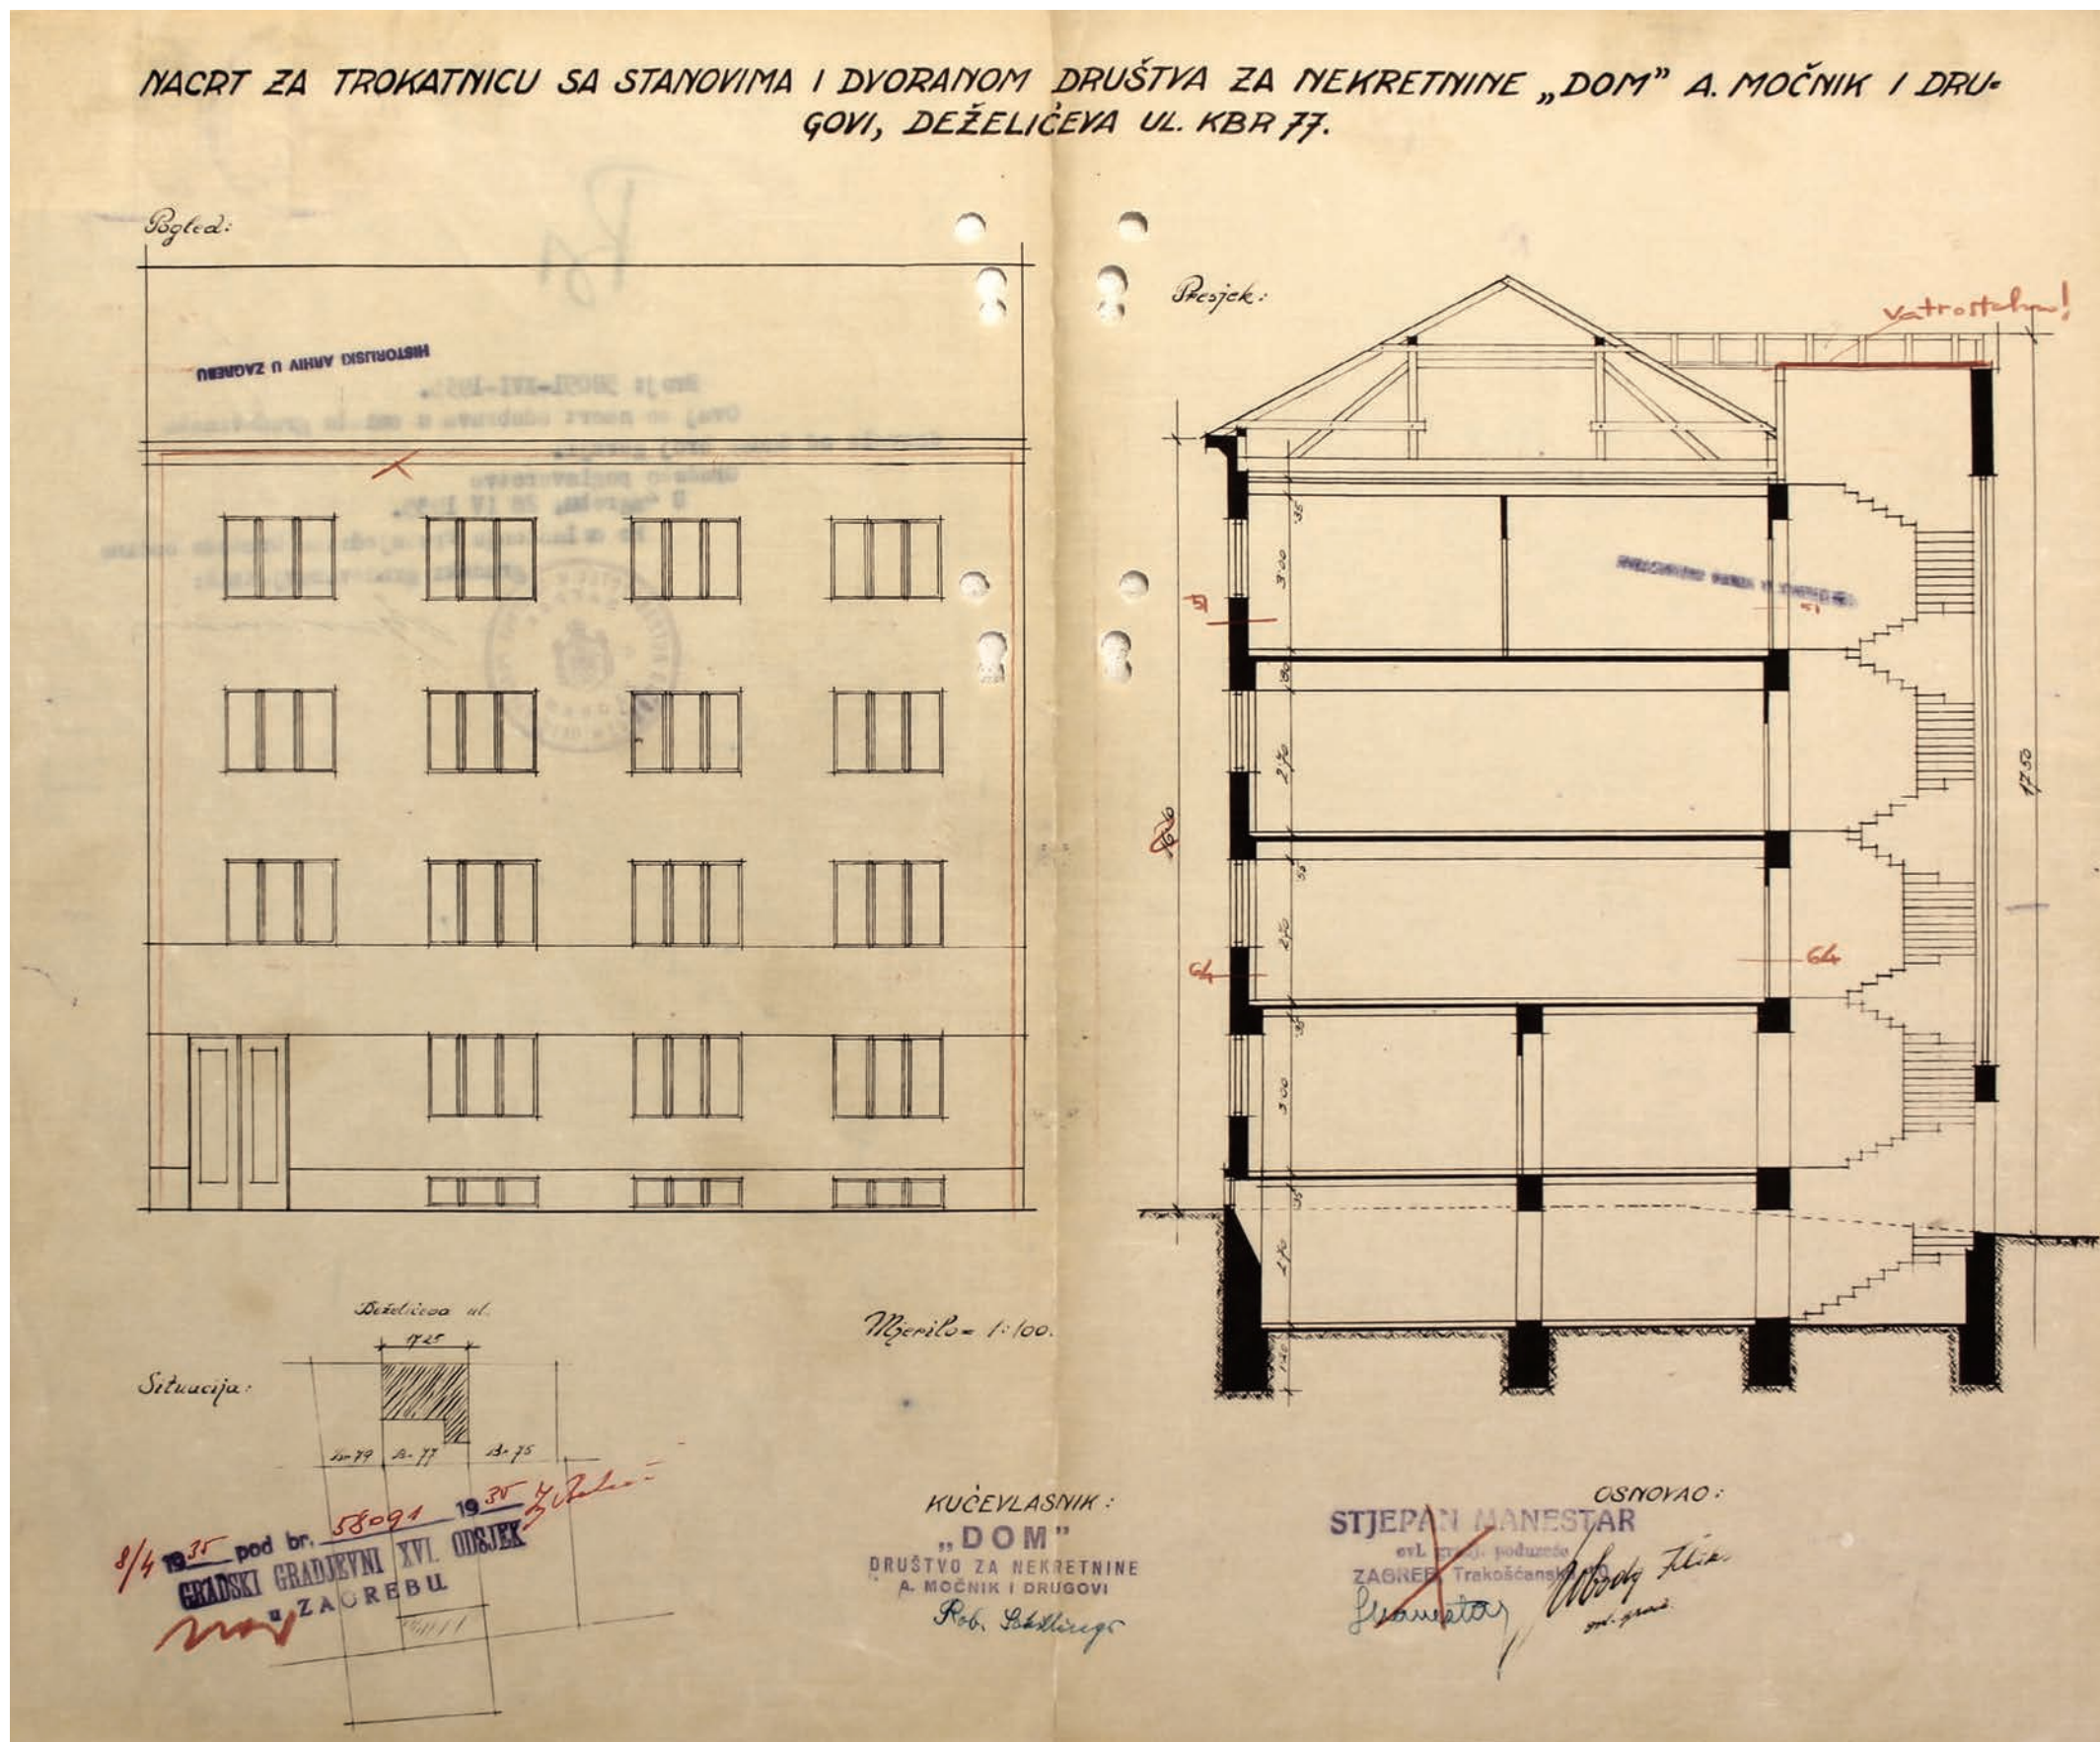 NACRT ZA TROKATNICU SA STANOVIMA I DVORANOM DRUŠTVA ZA NEKRETNINE „DOM” A. MOČNIK I DRU-
GOVI, DEŽELIĆEVA UL. KBR 77.
Pogled:
HISTORIJSKI ARHIV U ZAGREBU
Presjek:
vatrostalno!
35
3·00
51
51
30
2·70
17·50
55
2·70
64
64
35
3·00
35
2·70
Deželićeva ul.
17·25
Mjerilo = 1:100.
Situacija:
Br. 79
Br. 77
Br. 75
8/4 1935 pod br. 58091 1935
GRADSKI GRADJEVNI XVI. ODSJEK
u ZAGREBU
KUĆEVLASNIK:
„DOM”
DRUŠTVO ZA NEKRETNINE
A. MOČNIK I DRUGOVI
Rob.
OSNOVAO:
STJEPAN MANESTAR
ovl. gradj. poduzeće
ZAGREB, Trakošćanska